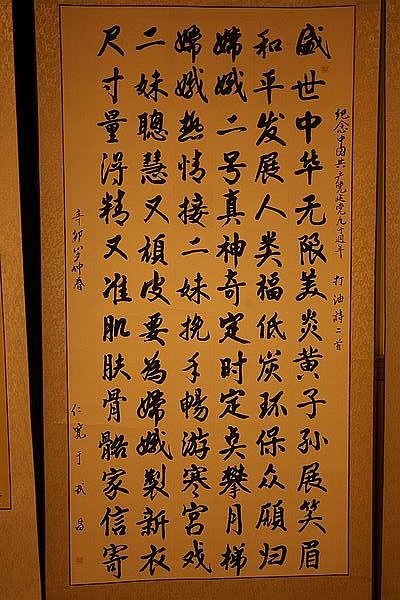 纪念中国共产党建党九十週年 打油詩二首
盛世中华无限美炎黄子孙展笑眉
和平发展人类福低炭环保众愿归
嫦娥二号真神奇定时定点攀月梯
嫦娥热情接二妹挽手暢游寒宫戏
二妹聰慧又頑皮要為嫦娥製新衣
尺寸量得精又准肌肤骨骼家信寄
辛卯岁仲春
仁寬于武昌